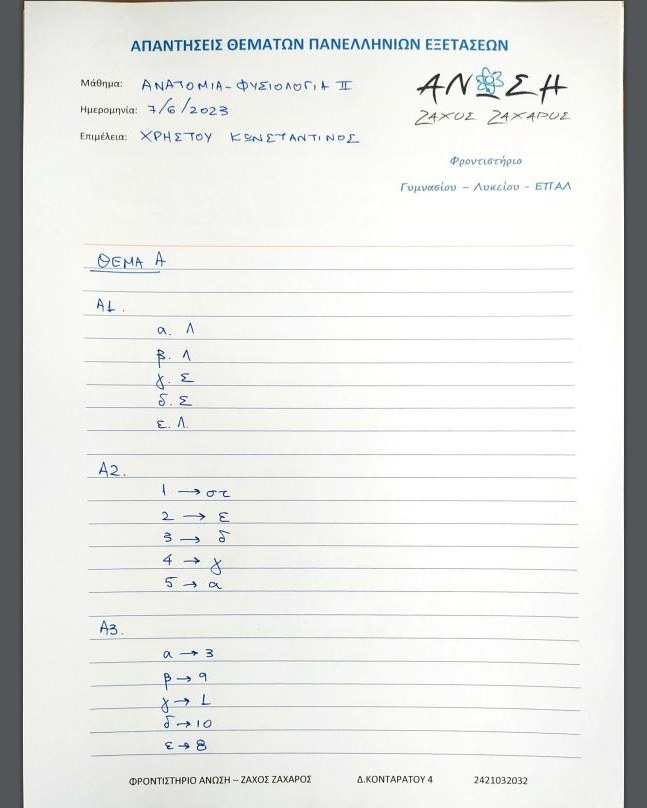 ΑΠΑΝΤΗΣΕΙΣ ΘΕΜΑΤΩΝ ΠΑΝΕΛΛΗΝΙΩΝ ΕΞΕΤΑΣΕΩΝ
Μάθημα: ΑΝΑΤΟΜΙΑ-ΦΥΣΙΟΛΟΓΙΑ ΙΙ
Ημερομηνία: 7/6/2023
Επιμέλεια: ΧΡΗΣΤΟΥ ΚΩΝΣΤΑΝΤΙΝΟΣ
ΑΝΩΣΗ
ΖΑΧΟΣ ΖΑΧΑΡΟΣ
Φροντιστήριο
Γυμνασίου – Λυκείου - ΕΠΑΛ
ΘΕΜΑ Α
Α1.
α. Λ
β. Λ
γ. Σ
δ. Σ
ε. Λ.
Α2.
1 → στ
2 → ε
3 → δ
4 → γ
5 → α
Α3.
α → 3
β → 9
γ → 1
δ → 10
ε → 8
ΦΡΟΝΤΙΣΤΗΡΙΟ ΑΝΩΣΗ – ΖΑΧΟΣ ΖΑΧΑΡΟΣ Δ.ΚΟΝΤΑΡΑΤΟΥ 4 2421032032